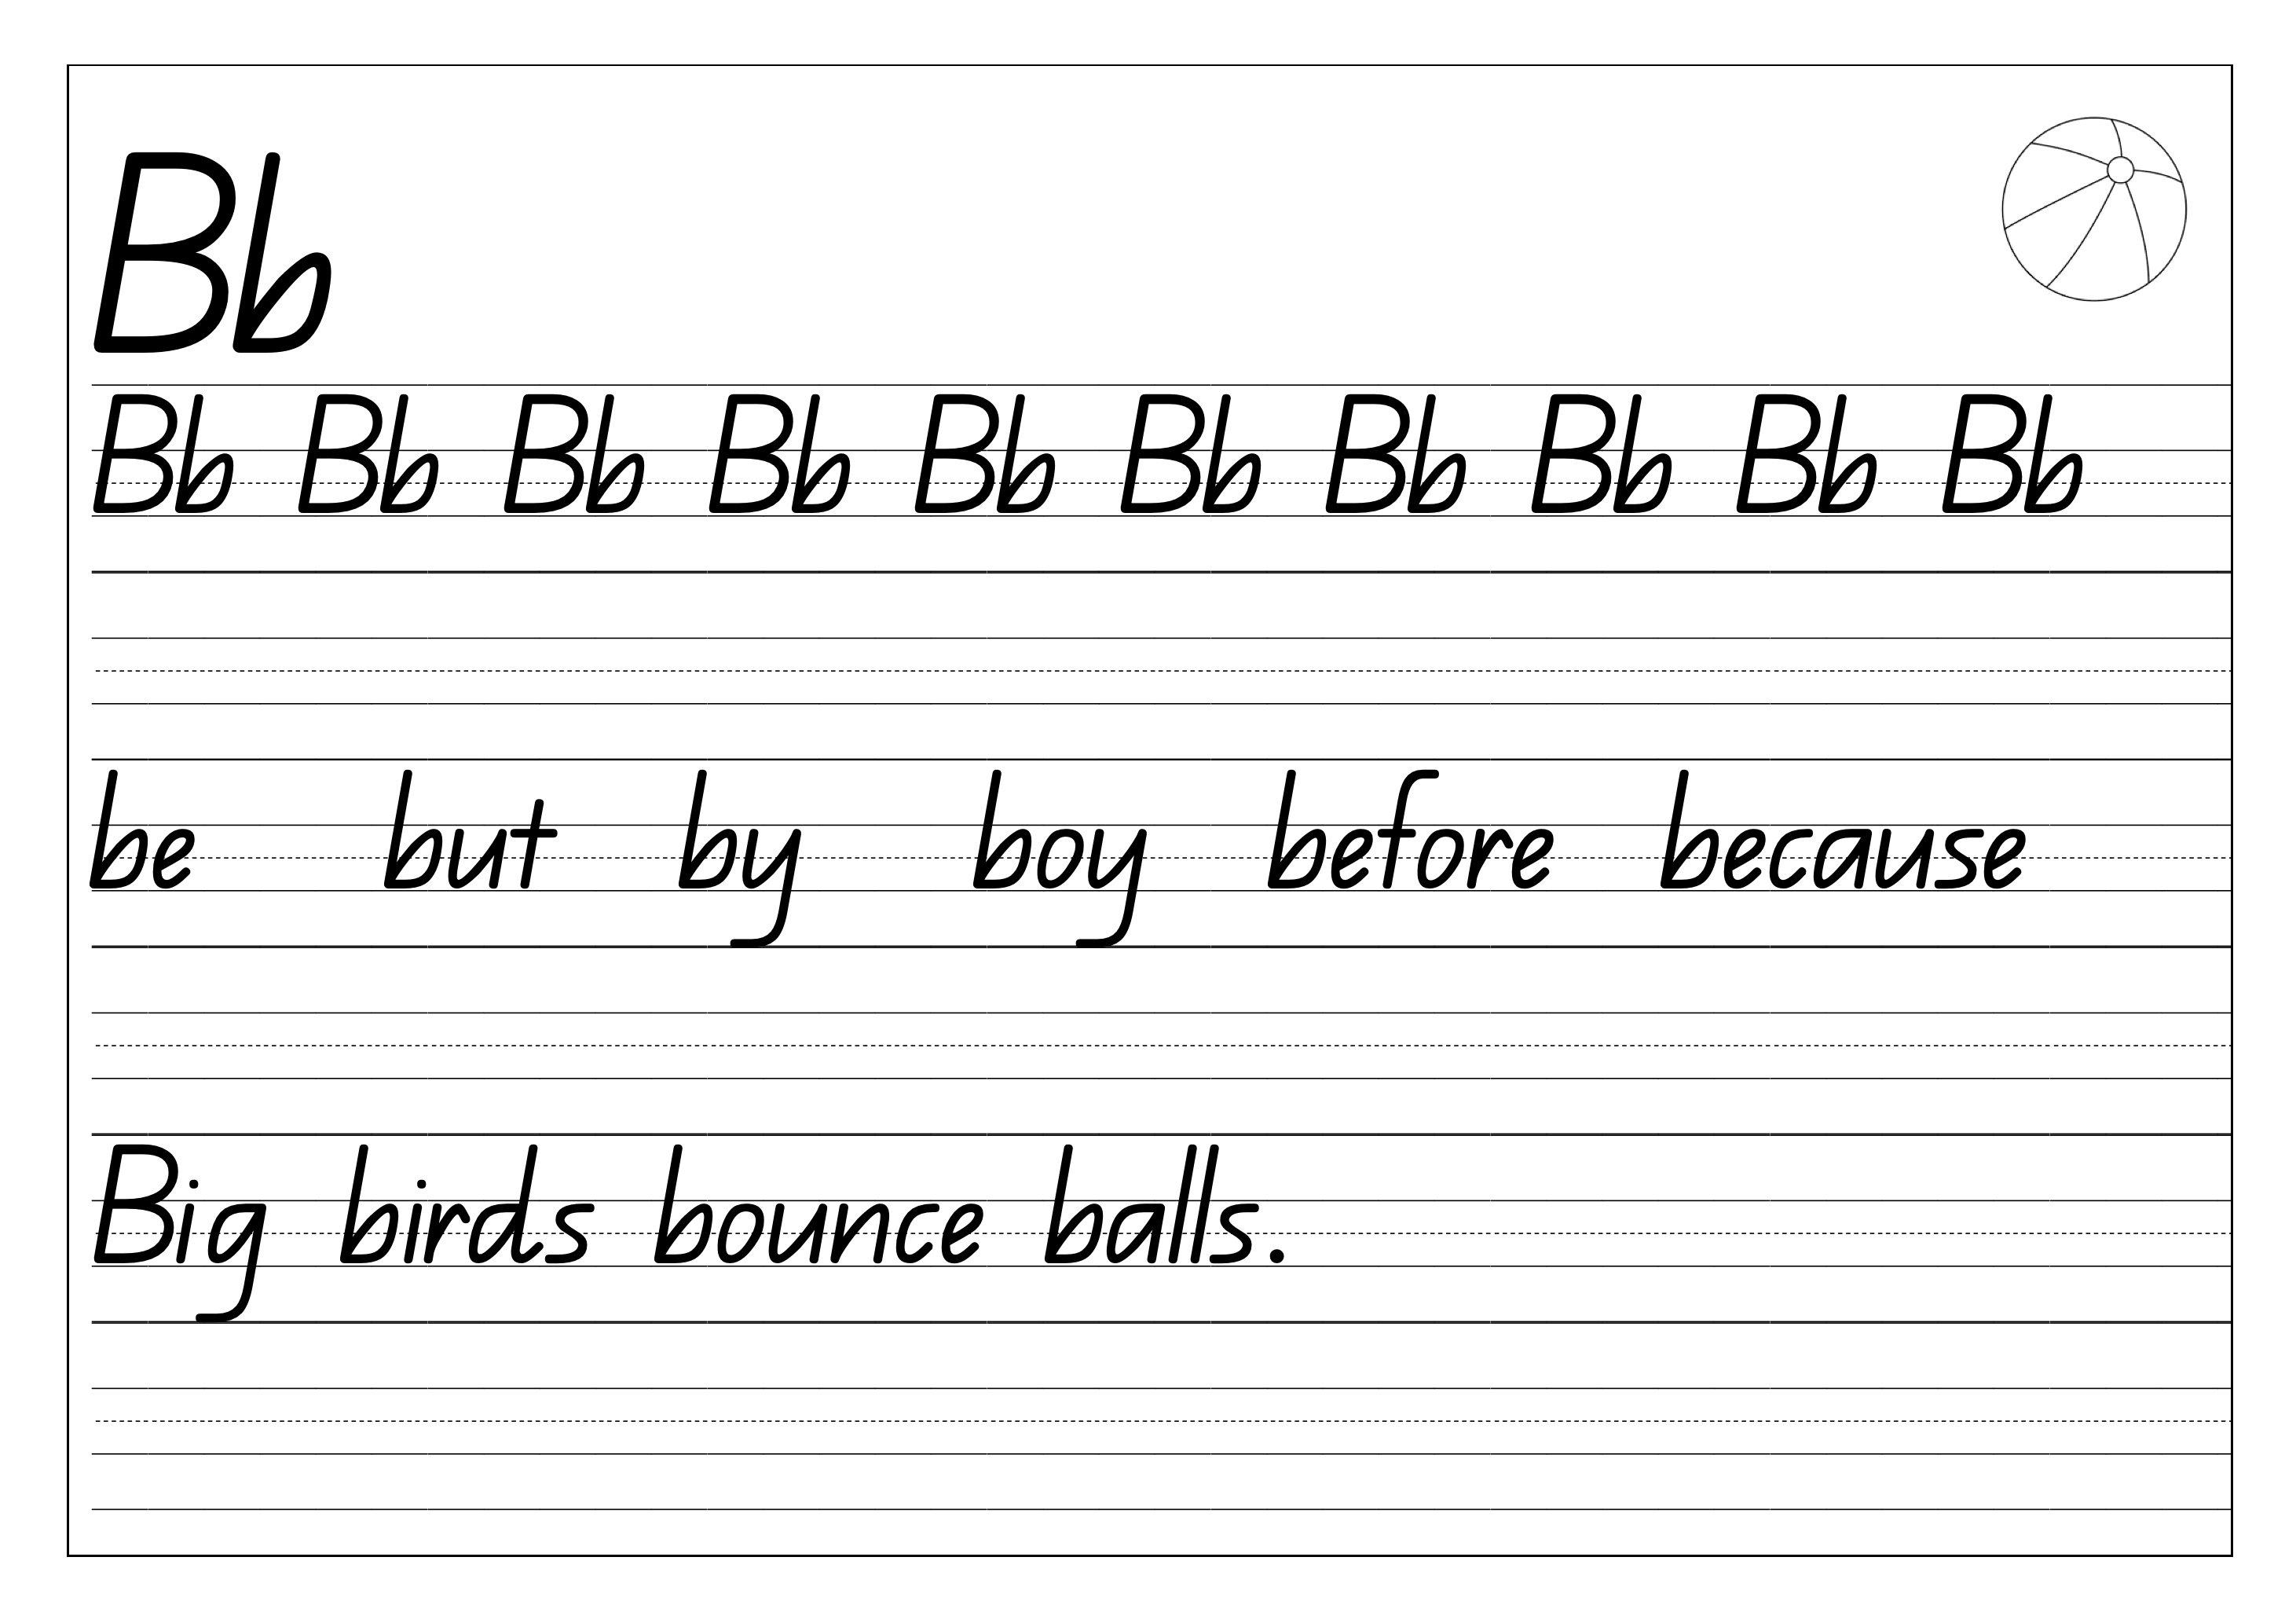 Bb
Bb Bb Bb Bb Bb Bb Bb Bb Bb Bb
be but by boy before because
Big birds bounce balls.